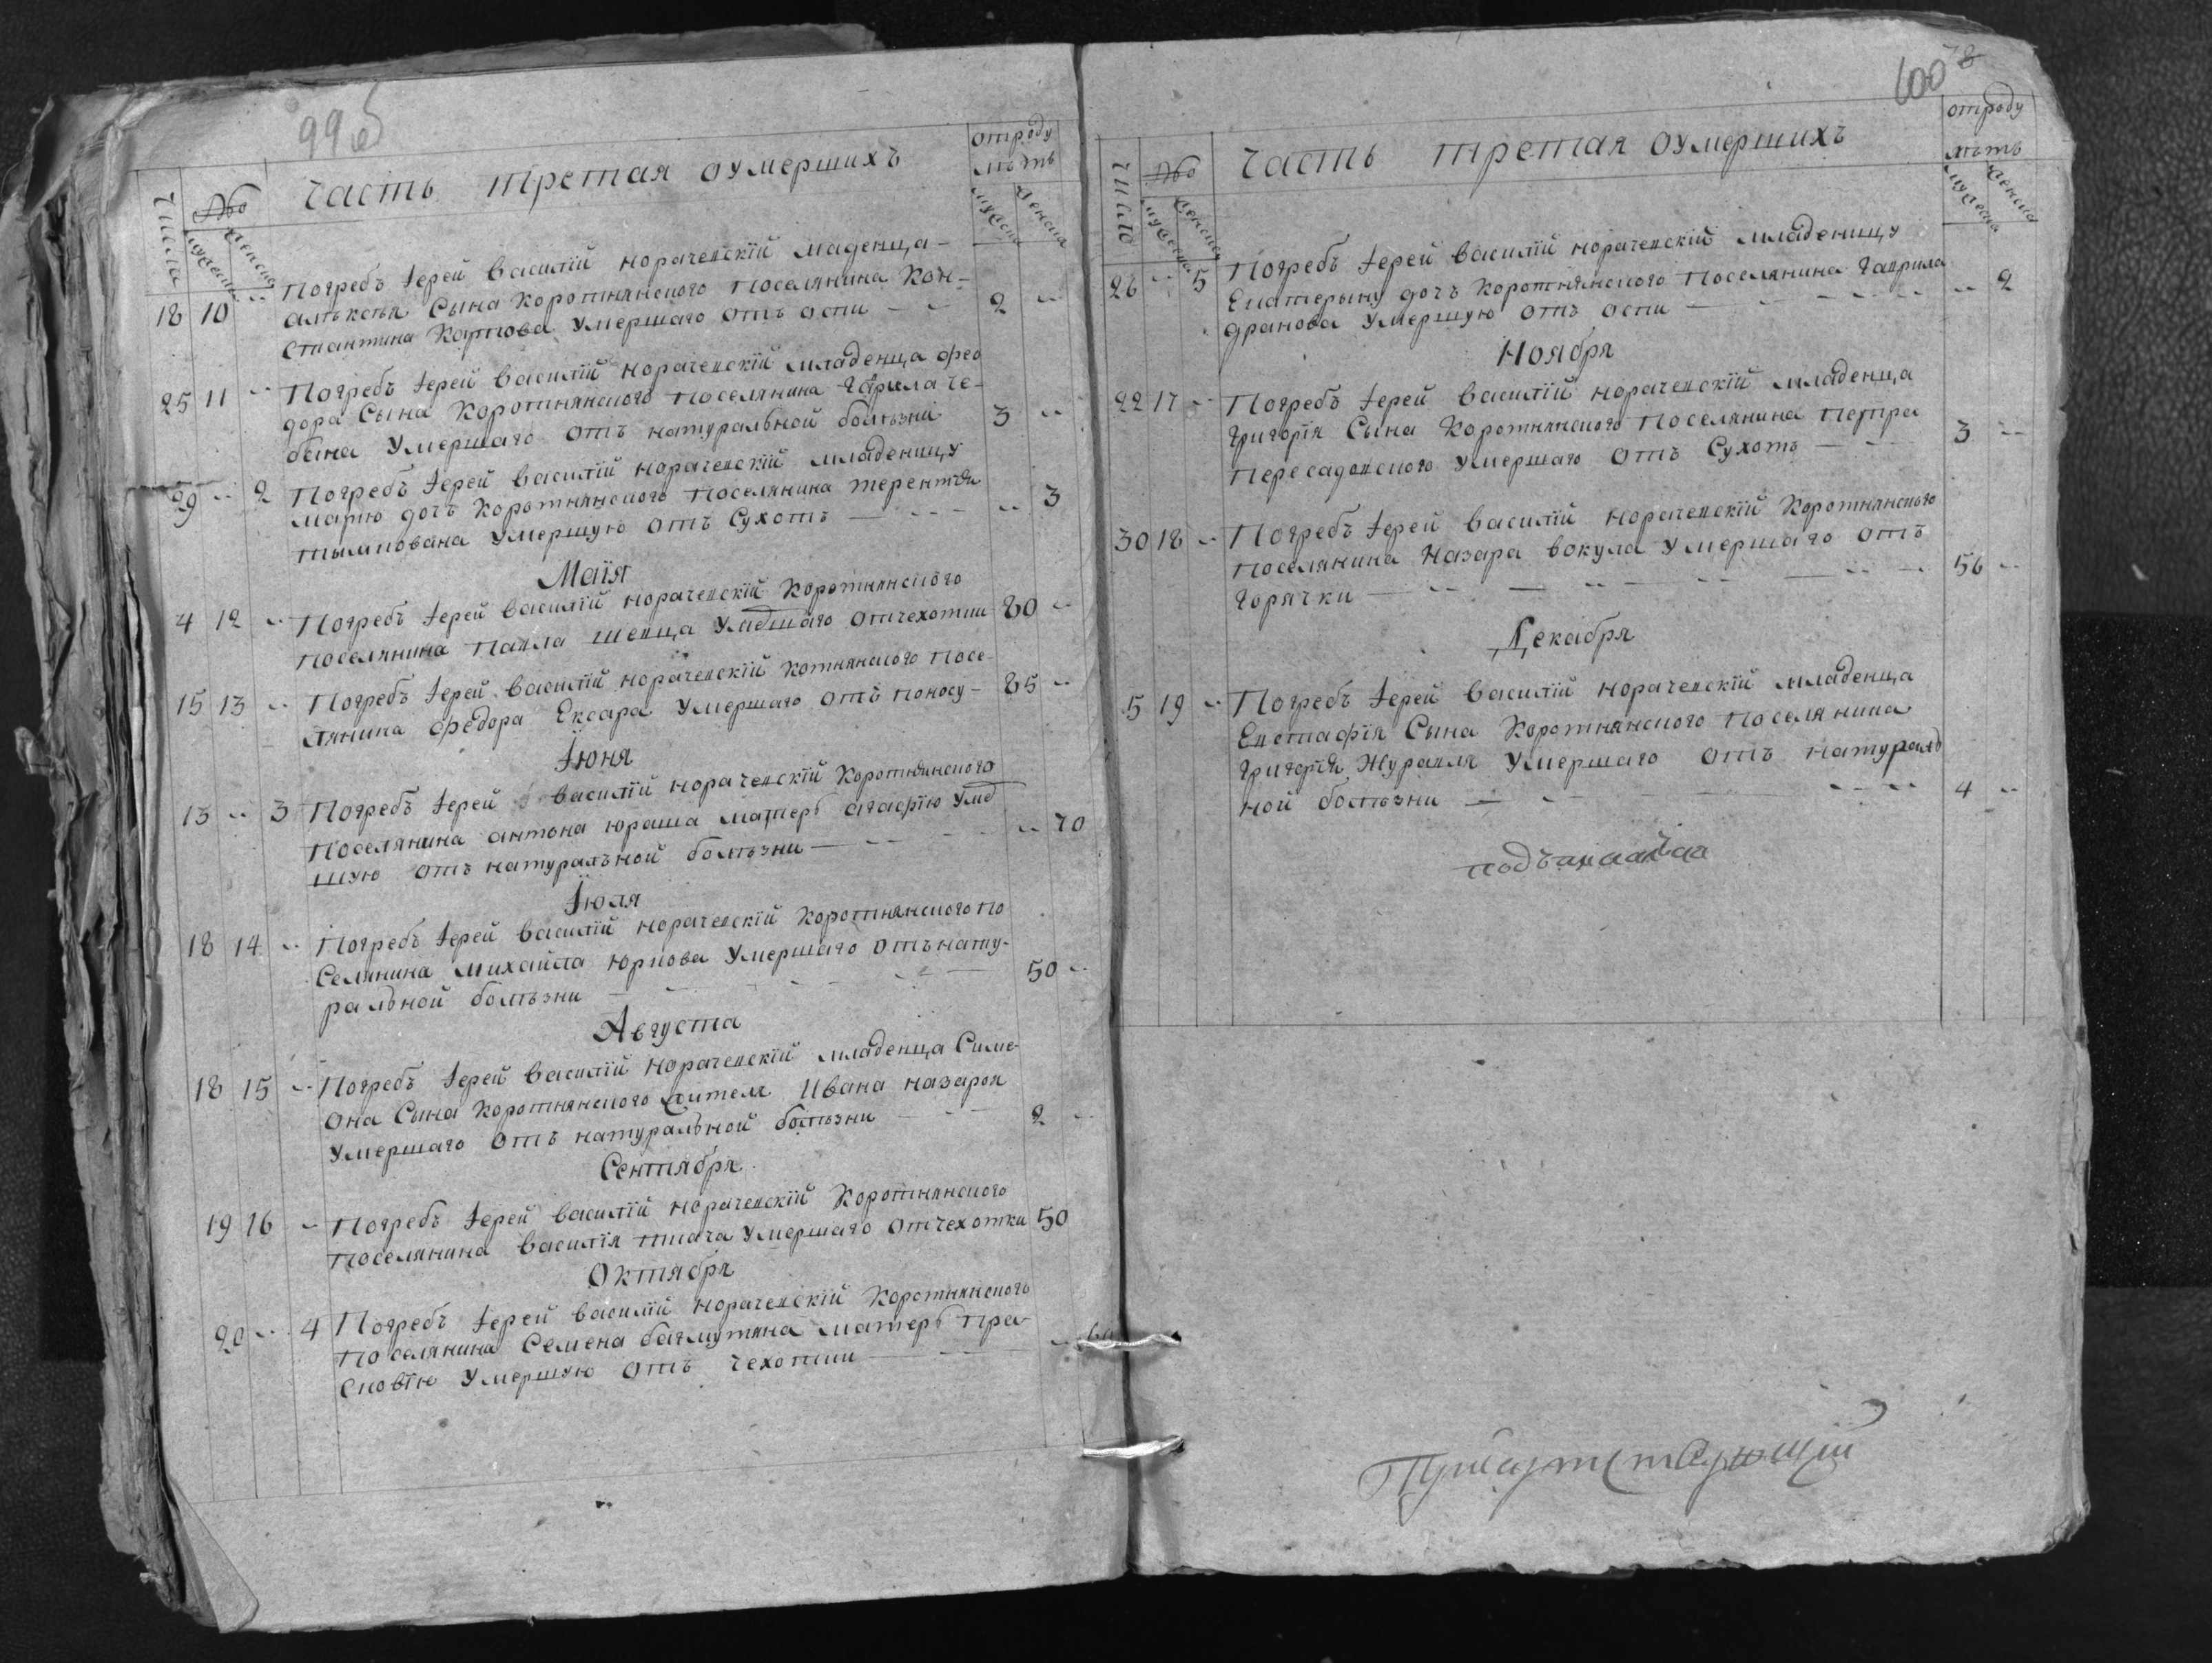 99об
Числа
№
мужеска
женска
Часть третая оумершихъ
отроду
лѣтъ
мужска
женска
18 10 Погребъ Іерей Василїй Корачевскїй маденца
алѣксѣя Сына Коротнянского Поселянина Кон-
стантина Карпова Умершаго отъ оспи 2
25 11 Погребъ Іерей Василїй Корачевскїй младенца фео
дора Сына Коротнянского Поселянина Гаврила Че-
бана Умершаго отъ натуральной болѣзни 3
29 2 Погребъ Іерей Василїй Корачевскїй младеницу
марию дочъ Коротнянского Поселянина терентїя
Умершую отъ Сухотъ 3
Маїя
4 12 Погребъ Іерей Василїй Корачевскїй Коротнянского
Поселянина Павла Шевца Умершаго отчехотки 80
15 13 Погребъ Іерей Василїй Корачевскїй Котнянского Посе-
лянина федора Ексара Умершаго отъ поносу 85
Іюня
13 3 Погребъ Іерей Василїй Корачевскїй Коротнянского
Поселянина антона юраша матерь агафїю Умер
шую отъ натуральной болѣзни 70
Іюля
18 14 Погребъ Іерей Василїй Корачевскїй Коротнянского По
Селянина михайла юркова Умершаго отънату-
ральной болѣзни 50
Августа
18 15 Погребъ Іерей Василїй Корачевскїй младенца Симе-
она Сына Коротнянского жителя Ивана назарья
Умершаго отъ натуральной болѣзни 2
Сентября
19 16 Погребъ Іерей Василїй Корачевскїй Коротнянского
Поселянина Василїя ткача Умершаго отчехотки 50
Октября
20 4 Погребъ Іерей Василїй Корачевскїй Коротнянского
Поселянина Семена багмутяна матерь Пра-
сковїю Умершую отъ чехотки 60
600
Число
№
мужеска
женска
Часть третая оумершихъ
отроду
лѣтъ
мужеска
женска
26 5 Погребъ Іерей Василїй Корачевскїй младеницу
Екатерыну дочъ Коротнянского Поселянина Гаврила
дранова Умершую отъ оспи 2
Ноября
22 17 Погребъ Іерей Василїй Корачевскїй младенца
Григорїя Сына Коротнянского Поселянина Петра
Пересадовского Умершаго отъ Сухотъ 3
30 18 Погребъ Іерей Василїй Корачевскїй Коротнянского
Поселянина Назара Вокула Умершаго отъ
Горячки 56
Декабря
5 19 Погребъ Іерей Василїй Корачевскїй младенца
Евстафїя Сына Коротнянского Поселянина
Григорїя Журавля Умершаго отъ натураль
ной болѣзни 4